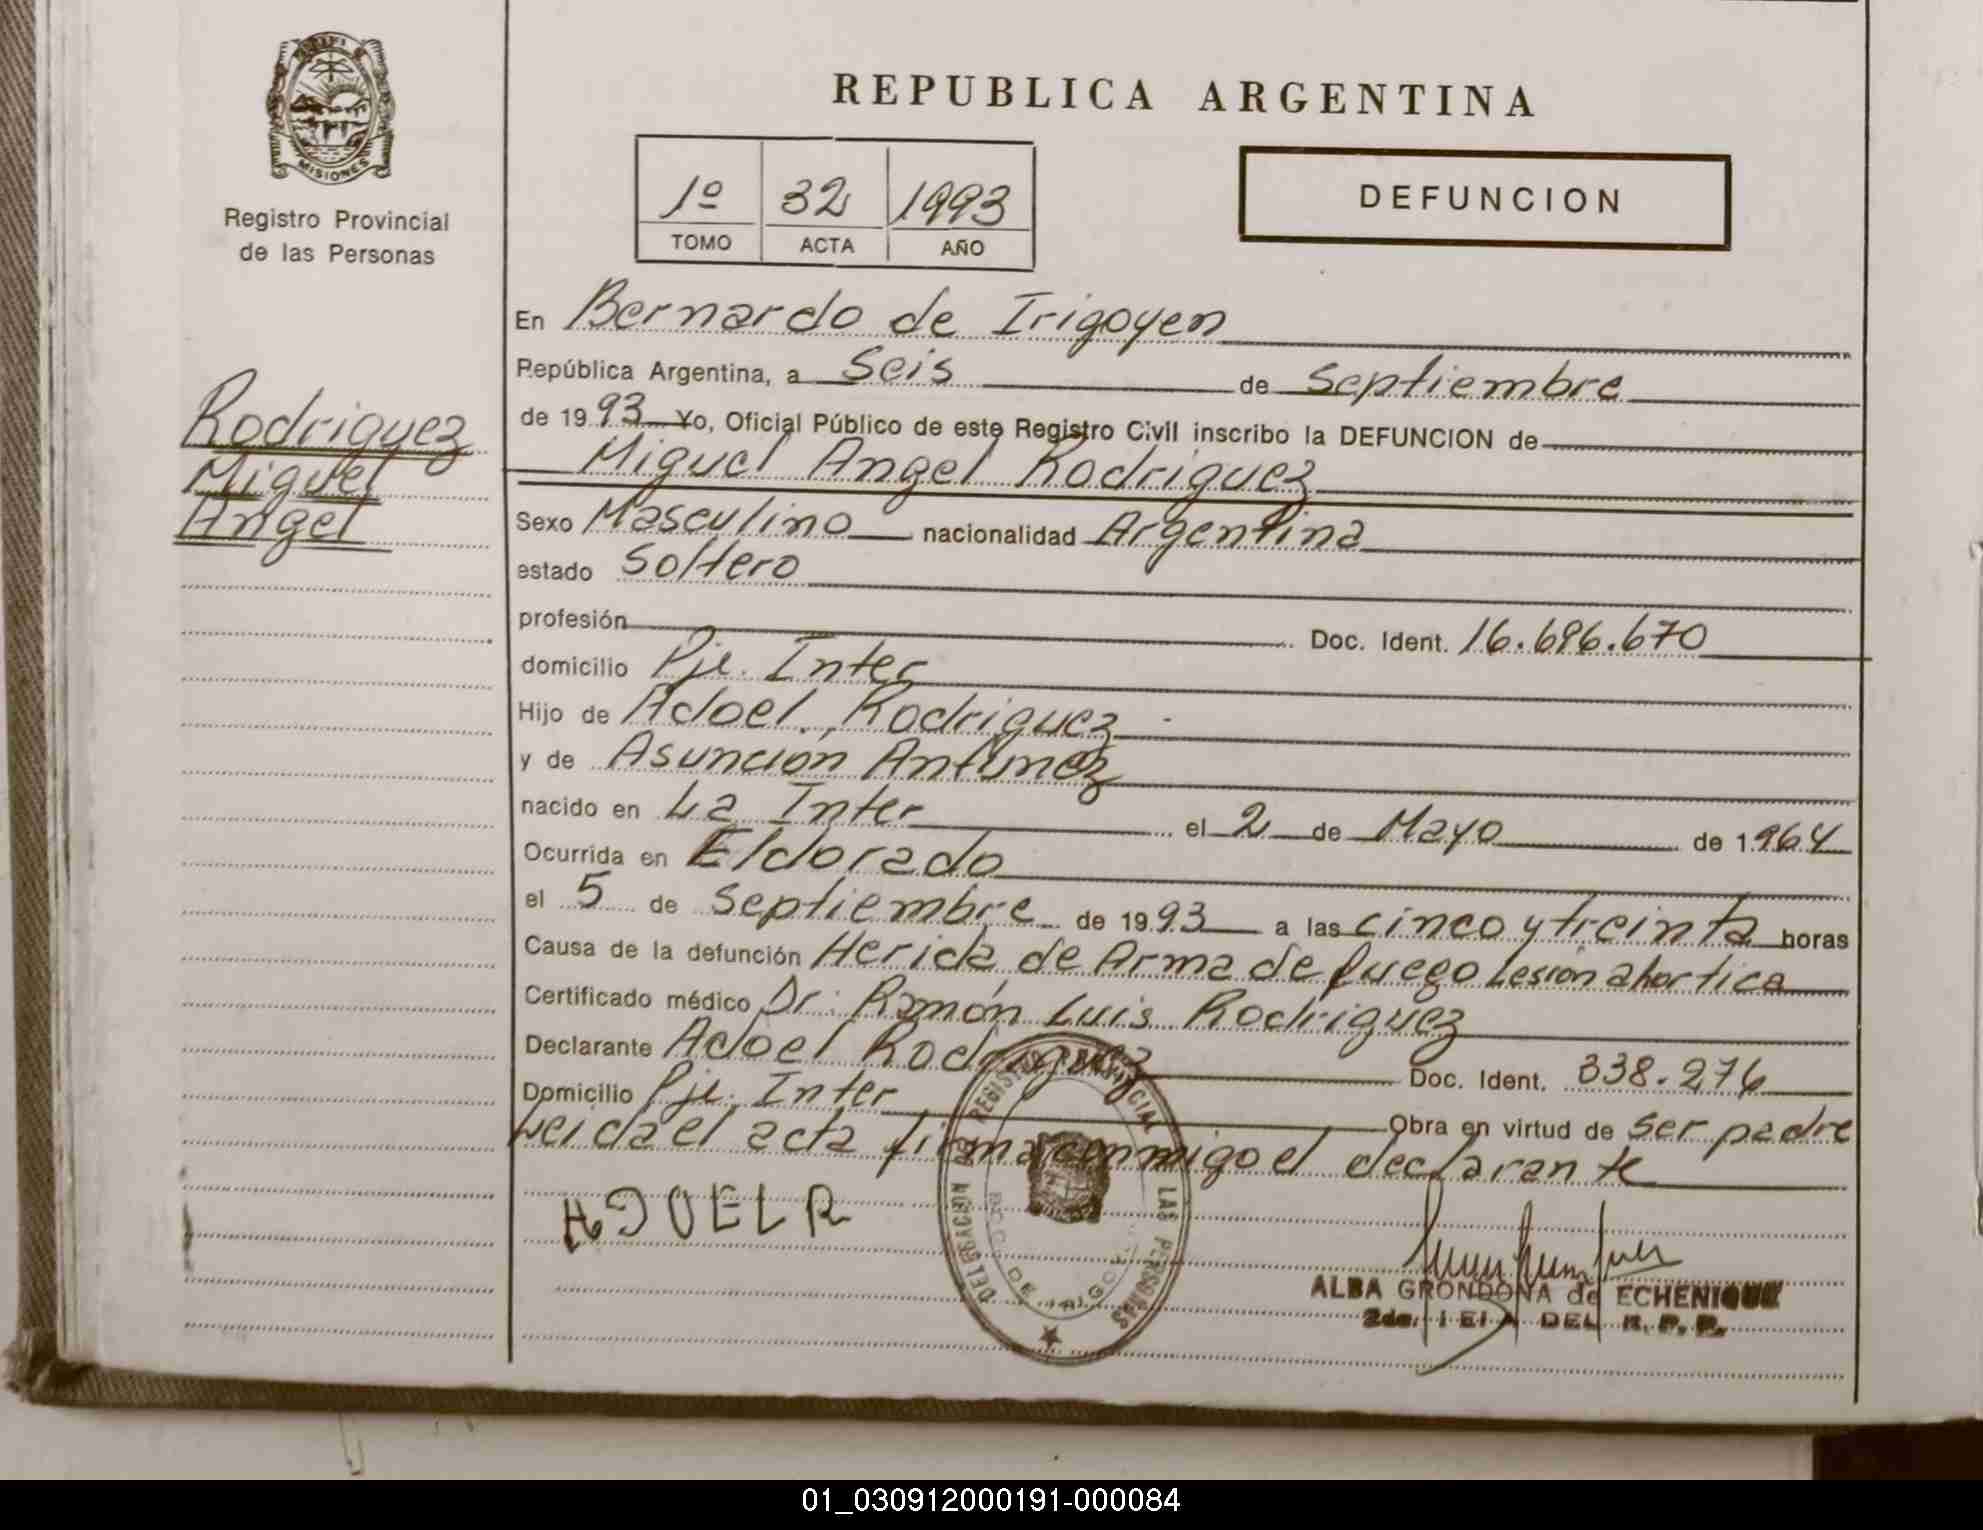 MISIONES
Registro Provincial
de las Personas
REPUBLICA ARGENTINA
1º 32 1993
TOMO ACTA AÑO
DEFUNCION
En Bernardo de Irigoyen
República Argentina, a Seis de Septiembre
de 1993 Yo, Oficial Público de este Registro Civil inscribo la DEFUNCION de
Rodriguez
Miguel
Angel
Miguel Angel Rodriguez
Sexo Masculino nacionalidad Argentina
estado Soltero
profesión Doc. Ident. 16.696.670
domicilio Pje. Inter
Hijo de Adoel Rodriguez
y de Asunción Antunez
nacido en La Inter el 2 de Mayo de 1964
Ocurrida en Eldorado
el 5 de Septiembre de 1993 a las cinco y treinta horas
Causa de la defunción Herida de Arma de fuego Lesion ahortica
Certificado médico Dr: Ramón Luis Rodriguez
Declarante Adoel Rodriguez Doc. Ident. 338.276
Domicilio Pje. Inter Obra en virtud de ser padre
Leida el acta firma conmigo el declarante
ADOEL R
DELEGACION DEL REGISTRO PROVINCIAL DE LAS PERSONAS
BDO. DE IRIGOYEN
ALBA GRONDONA de ECHENIQUE
DEL R. P. P.
01_030912000191-000084